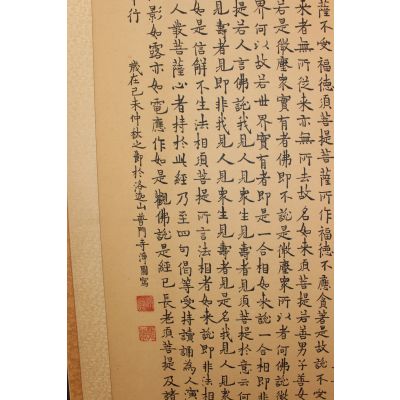 薩不受福德須菩提薩所作福德不應貪著是故說不受
來者無所從來亦無所去故名如來須菩提若善男子善女
若是微塵眾實有者佛即不說是微塵眾所以者何佛說微
界何以故若世界實有者即是一合相如來說一合相即非
提若人言佛說我見人見眾生見壽者見須菩提於意云何
見壽者見即非我見人見眾生見壽者見是名我見人見眾
如是信解不生法相須菩提所言法相者如來說即非法相
人發菩薩心者持於此經乃至四句偈等受持讀誦為人演
影如露亦如電應作如是觀佛說是經已長老須菩提及諸
行
歲在己未仲秋之節於洛迦山普門寺淨圓寫